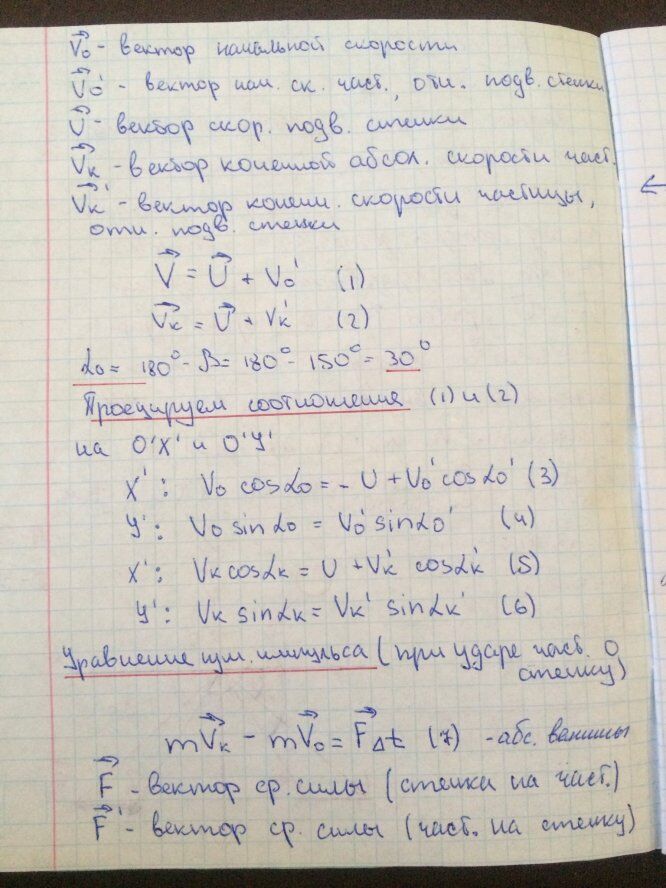 V⃗₀ - вектор начальной скорости
V⃗₀' - вектор нач. ск. част., отн. подв. стенки
U⃗ - вектор скор. подв. стенки
V⃗к - вектор конечной абсол. скорости част.
V⃗к' - вектор конечн. скорости частицы,
отн. подв. стенки
V⃗ = U⃗ + V₀' (1)
V⃗к = U⃗ + Vк' (2)
α₀ = 180° - β = 180° - 150° = 30°
Проецируем соотношения (1) и (2)
на O'X' и O'Y'
X': V₀ cosα₀ = - U + V₀' cosα₀' (3)
Y': V₀ sinα₀ = V₀' sinα₀' (4)
X': Vк cosαк = U + Vк' cosαк' (5)
Y': Vк sinαк = Vк' sinαк' (6)
Уравнение изм. импульса (при ударе част. о
стенку)
mV⃗к - mV⃗₀ = F⃗Δt (7) - абс.
F⃗ - вектор ср. силы (стенка на част.)
F⃗' - вектор ср. силы (част. на стенку)